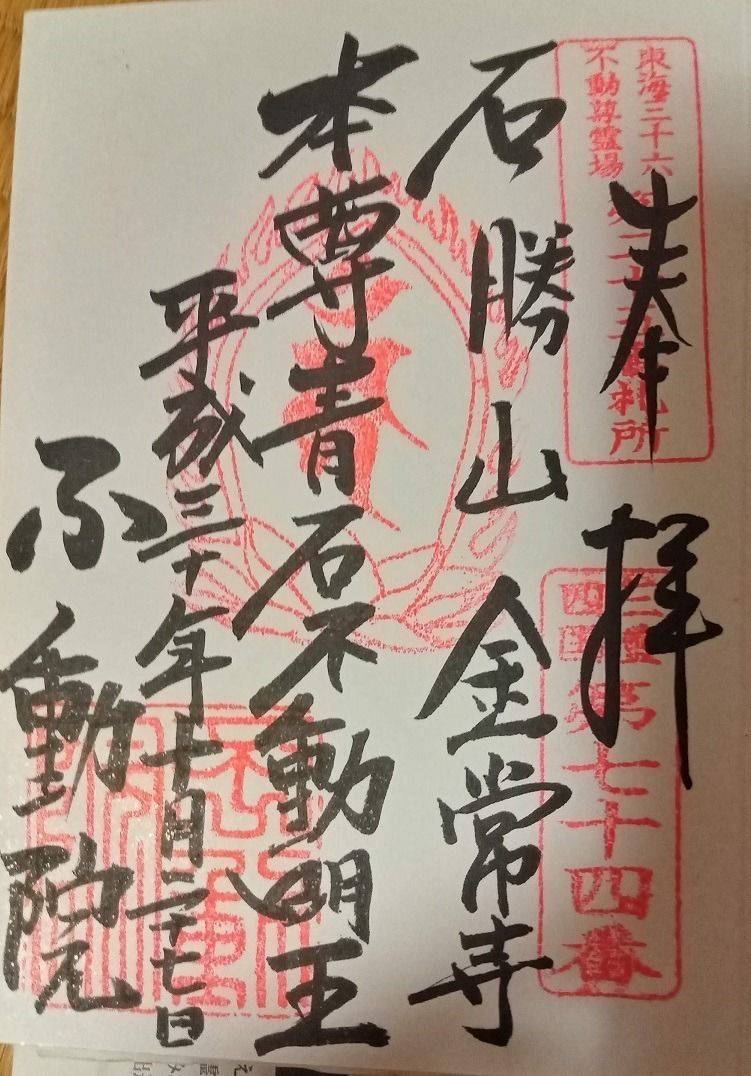 奉拝
東海三十六
不動尊霊場
第二十三番札所
四国
第七十四番
石勝山金常寺
本尊青石不動明王
平成三十年十月二十七日
不動院